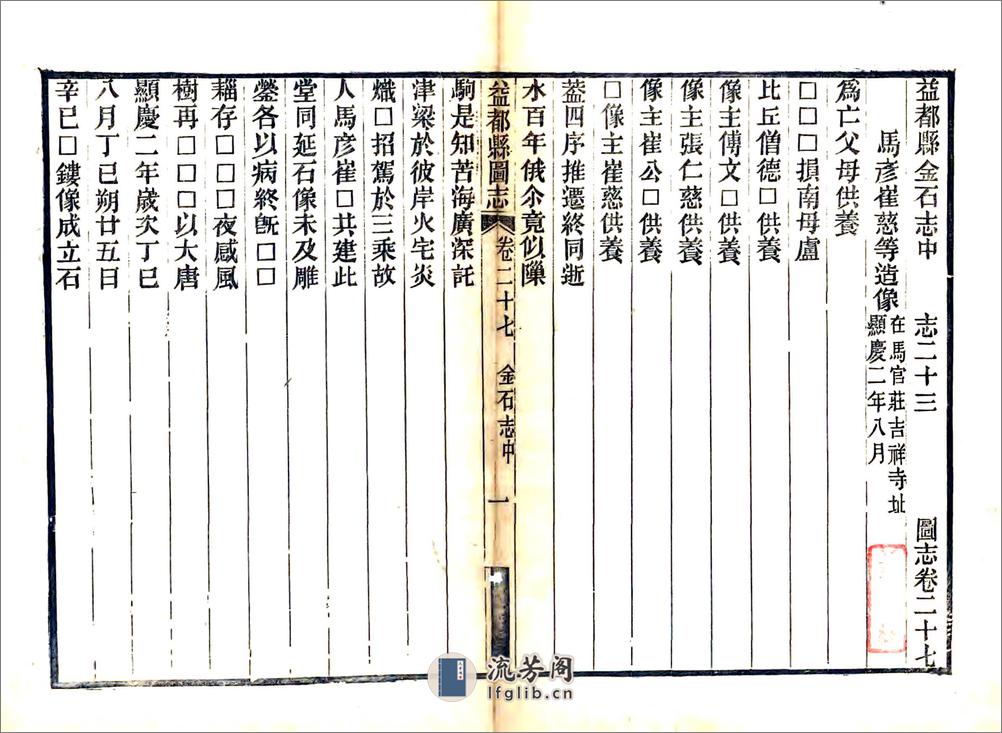 益都縣金石志中 志二十三 圖志卷二十七
馬彥崔慈等造像 在馬官莊吉祥寺址
顯慶二年八月
爲亡父母供養
□□□損南母盧
比丘僧德□供養
像主傅文□供養
像主張仁慈供養
像主崔公□供養
□像主崔慈供養
葢四序推遷終同逝
水百年俄尒竟似隟
益都縣圖志 卷二十七 金石志中 一
駒是知苦海廣深託
津梁於彼岸火宅炎
熾□招駕於三乘故
人馬彥崔□共建此
堂同延石像未及雕
鎣各以病終旣□□
䎩存□□□夜感風
樹再□□□以大唐
顯慶二年歲次丁巳
八月丁巳朔廿五日
辛巳□鏤像成立石
流芳阁
lfglib.cn